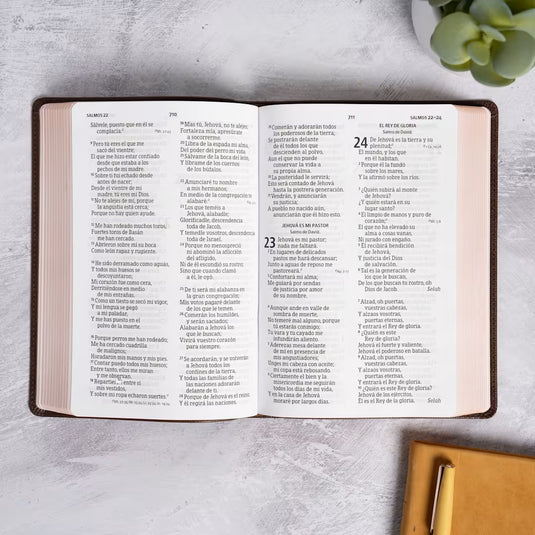 SALMOS 22
710
Sálvele, puesto que en él se
complacía.
⁹ Pero tú eres el que me
sacó del vientre;
El que me hizo estar confiado
desde que estaba a los
pechos de mi madre.
¹⁰ Sobre ti fui echado desde
antes de nacer;
Desde el vientre de mi
madre, tú eres mi Dios.
¹¹ No te alejes de mí, porque
la angustia está cerca;
Porque no hay quien ayude.
¹² Me han rodeado muchos toros;
Fuertes toros de Basán
me han cercado.
¹³ Abrieron sobre mí su boca
Como león rapaz y rugiente.
¹⁴ He sido derramado como aguas,
Y todos mis huesos se
descoyuntaron;
Mi corazón fue como cera,
Derritiéndose en medio
de mis entrañas.
¹⁵ Como un tiesto se secó mi vigor,
Y mi lengua se pegó
a mi paladar,
Y me has puesto en el
polvo de la muerte.
¹⁶ Porque perros me han rodeado;
Me ha cercado cuadrilla
de malignos;
Horadaron mis manos y mis pies.
¹⁷ Contar puedo todos mis huesos;
Entre tanto, ellos me miran
y me observan.
¹⁸ Repartieron entre sí
mis vestidos,
Y sobre mi ropa echaron suertes.
¹⁹ Mas tú, Jehová, no te alejes;
Fortaleza mía, apresúrate
a socorrerme.
²⁰ Libra de la espada mi alma,
Del poder del perro mi vida.
²¹ Sálvame de la boca del león,
Y líbrame de los cuernos
de los búfalos.
²² Anunciaré tu nombre
a mis hermanos;
En medio de la congregación
te alabaré.
²³ Los que teméis a
Jehová, alabadle;
Glorificadle, descendencia
toda de Jacob,
Y temedle vosotros, descendencia
toda de Israel.
²⁴ Porque no menospreció
ni abominó la aflicción
del afligido,
Ni de él escondió su rostro;
Sino que cuando clamó
a él, le oyó.
²⁵ De ti será mi alabanza en
la gran congregación;
Mis votos pagaré delante
de los que le temen.
²⁶ Comerán los humildes,
y serán saciados;
Alabarán a Jehová los
que le buscan;
Vivirá vuestro corazón
para siempre.
²⁷ Se acordarán, y se volverán
a Jehová todos los
confines de la tierra,
Y todas las familias de
las naciones adorarán
delante de ti.
²⁸ Porque de Jehová es el reino,
Y él regirá las naciones.
711
SALMOS 22–24
²⁹ Comerán y adorarán todos
los poderosos de la tierra;
Se postrarán delante
de él todos los que
descienden al polvo,
Aun el que no puede
conservar la vida a
su propia alma.
³⁰ La posteridad le servirá;
Esto será contado de Jehová
hasta la postrera generación.
³¹ Vendrán, y anunciarán
su justicia;
A pueblo no nacido aún,
anunciarán que él hizo esto.
JEHOVÁ ES MI PASTOR
Salmo de David.
23 Jehová es mi pastor;
nada me faltará.
² En lugares de delicados
pastos me hará descansar;
Junto a aguas de reposo me
pastoreará.
³ Confortará mi alma;
Me guiará por sendas
de justicia por amor
de su nombre.
⁴ Aunque ande en valle de
sombra de muerte,
No temeré mal alguno, porque
tú estarás conmigo;
Tu vara y tu cayado me
infundirán aliento.
⁵ Aderezas mesa delante
de mí en presencia de
mis angustiadores;
Unges mi cabeza con aceite;
mi copa está rebosando.
⁶ Ciertamente el bien y la
misericordia me seguirán
todos los días de mi vida,
Y en la casa de Jehová
moraré por largos días.
EL REY DE GLORIA
Salmo de David.
24 De Jehová es la tierra y su
plenitud;
El mundo, y los que
en él habitan.
² Porque él la fundó
sobre los mares,
Y la afirmó sobre los ríos.
³ ¿Quién subirá al monte
de Jehová?
¿Y quién estará en su
lugar santo?
⁴ El limpio de manos y puro de
corazón;
El que no ha elevado su
alma a cosas vanas,
Ni jurado con engaño.
⁵ Él recibirá bendición
de Jehová,
Y justicia del Dios
de salvación.
⁶ Tal es la generación
de los que le buscan,
De los que buscan tu rostro, oh
Dios de Jacob. Selah
⁷ Alzad, oh puertas,
vuestras cabezas,
Y alzaos vosotras,
puertas eternas,
Y entrará el Rey de gloria.
⁸ ¿Quién es este
Rey de gloria?
Jehová el fuerte y valiente,
Jehová el poderoso en batalla.
⁹ Alzad, oh puertas,
vuestras cabezas,
Y alzaos vosotras,
puertas eternas,
Y entrará el Rey de gloria.
¹⁰ ¿Quién es este Rey de gloria?
Jehová de los ejércitos,
Él es el Rey de la gloria. Selah